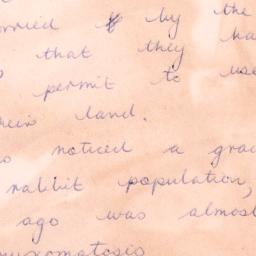 by the
that they ha
permit to use
land.
noticed a grad
rabbit population,
ago was almost
myxomatosis